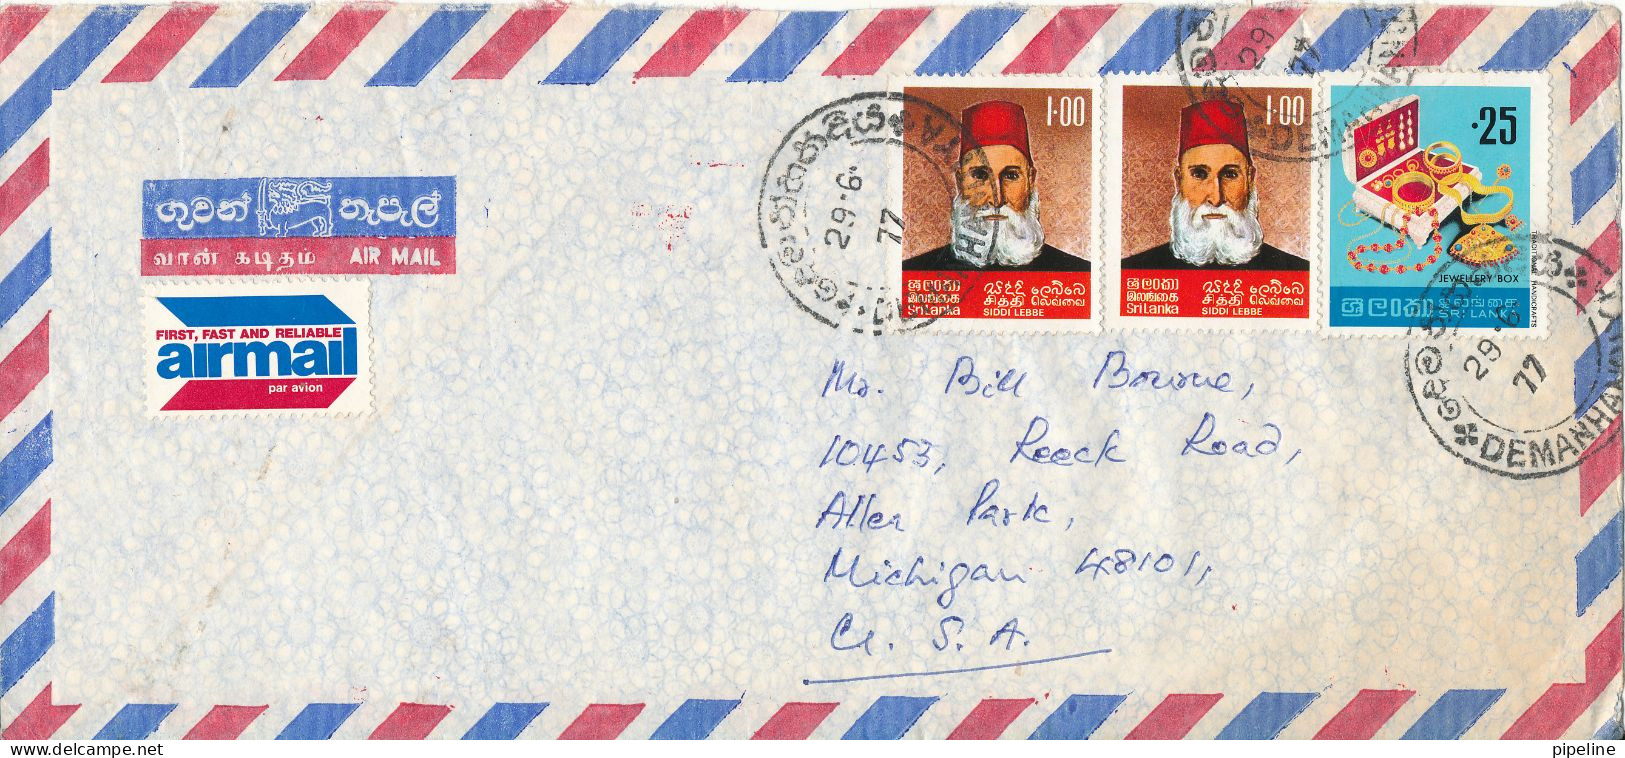 ගුවන් තැපැල්
வான் கடிதம் AIR MAIL
FIRST, FAST AND RELIABLE
airmail
par avion
1·00
ශ්‍රී ලංකා
இலங்கை
Sri Lanka
සිද්දි ලෙබ්බේ
சித்தி லெவ்வை
SIDDI LEBBE
1·00
ශ්‍රී ලංකා
இலங்கை
Sri Lanka
සිද්දි ලෙබ්බේ
சித்தி லெவ்வை
SIDDI LEBBE
·25
JEWELLERY BOX
TRADITIONAL HANDICRAFTS
ශ්‍රී ලංකා
இலங்கை
SRI LANKA
29·6·
77
29
77
DEMANHAN
29·6·
77
DEMANHA
Mr. Bill Bourne,
10453, Reeck Road,
Allen Park,
Michigan 48101,
U. S. A.
www.delcampe.net
pipeline